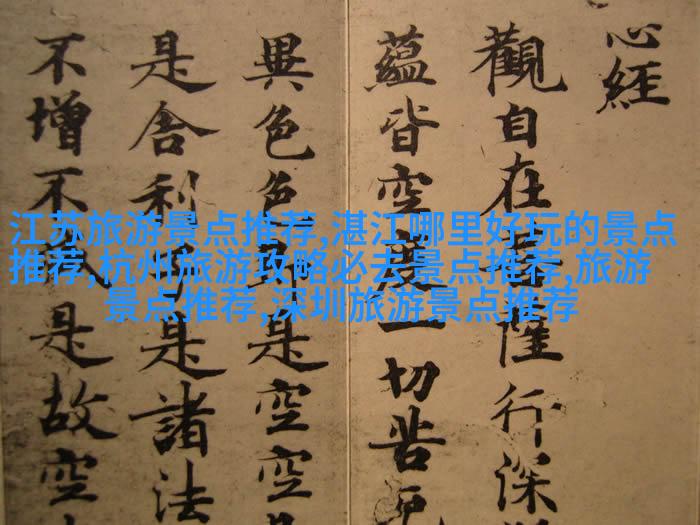 心經
觀自在菩薩行深
蘊皆空度一切苦厄
異色色即是空空是
是舍利子是諸法
不增不減是故空
江苏旅游景点推荐,湛江哪里好玩的景点
推荐,杭州旅游攻略必去景点推荐,旅游
景点推荐,深圳旅游景点推荐